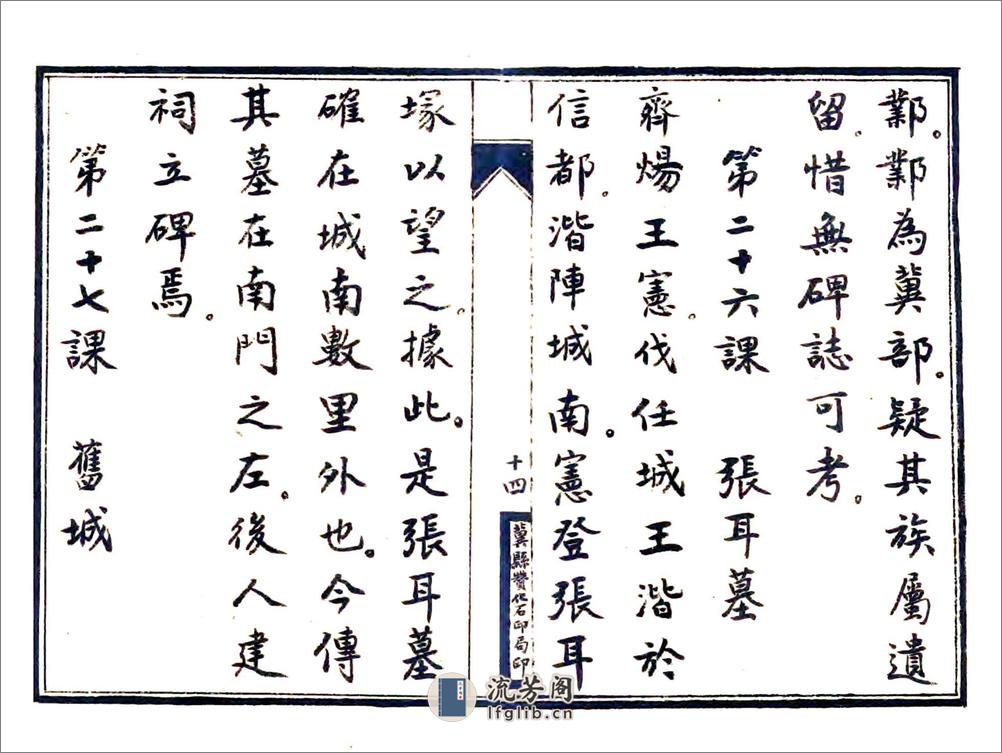 鄴。鄴為冀部。疑其族屬遺
留。惜無碑誌可考。
第二十六課 張耳墓
齊煬王憲。伐任城王湝於
信都。湝陣城南。憲登張耳
十四
冀縣贊化石印局印
塚以望之。據此。是張耳墓
確在城南數里外也。今傳
其墓在南門之左。後人建
祠立碑焉。
第二十七課 舊城
流芳阁
lfglib.cn